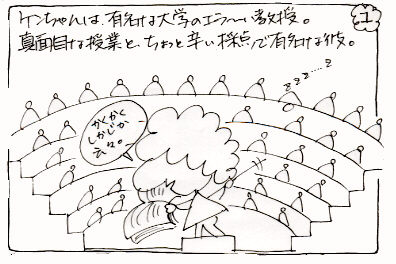 ケンちゃんは、有名な大学のエラ〜い教授。
真面目な授業と、ちょっと辛い採点で有名な彼。
1
zzz....z
かくかく
しかじか
云々。